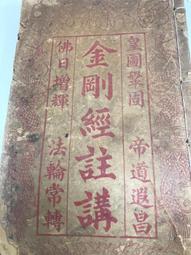 皇圖鞏固
帝道遐昌
金剛經註講
佛日增輝
法輪常轉